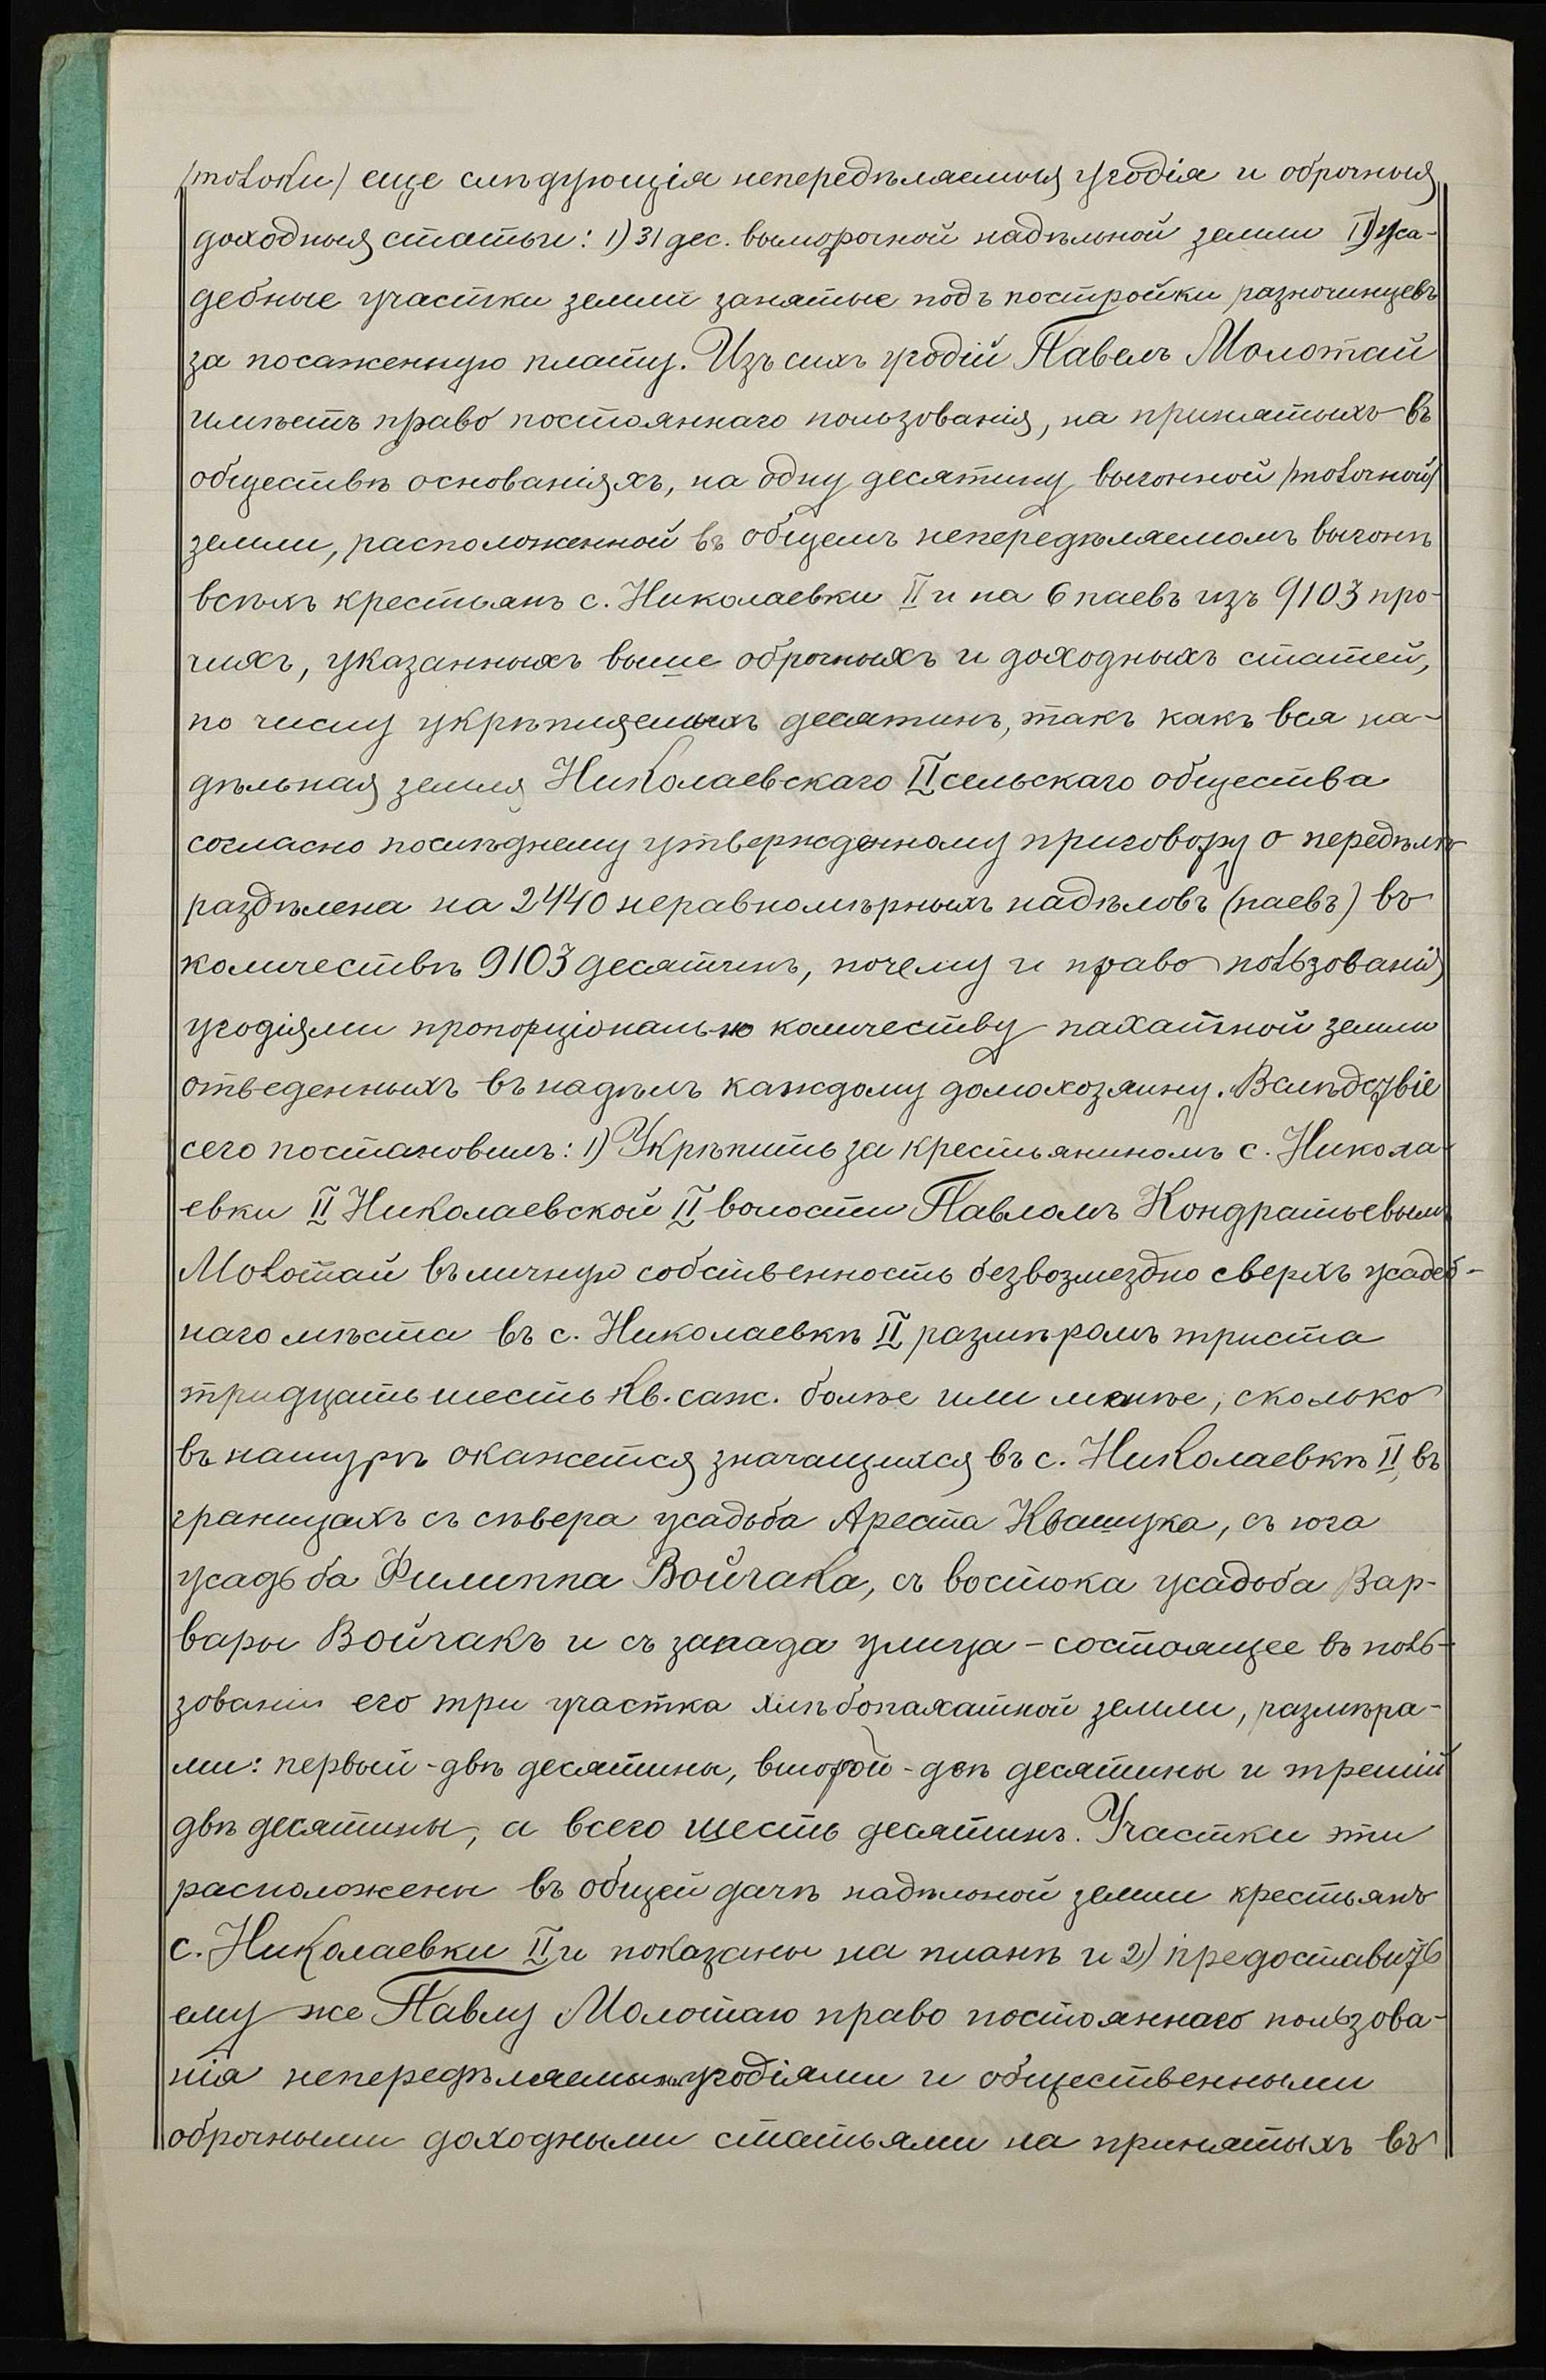 /толоки/ еще слѣдующія непередѣляемыя угодія и оброчныя
доходныя статьи: 1) 31 дес. выморочной надѣльной земли II) уса-
дебные участки земли занятые подъ постройки разночинцевъ
за посаженную плату. Изъ сихъ угодій Павелъ Молотай
имѣетъ право постояннаго пользованія, на принятыхъ въ
обществѣ основаніяхъ, на одну десятину выгонной /толочной/
земли, расположенной въ общемъ непередѣляемомъ выгонѣ
всѣхъ крестьянъ с. Николаевки II и на 6 паевъ изъ 9103 про-
чихъ, указанныхъ выше оброчныхъ и доходныхъ статей,
по числу укрѣпляемыхъ десятинъ, такъ какъ вся на-
дѣльная земля Николаевскаго II сельскаго общества
согласно послѣднему утвержденному приговору о передѣлѣ
раздѣлена на 2440 неравномѣрныхъ надѣловъ (паевъ) въ
количествѣ 9103 десятинъ, почему и право пользованія
угодіями пропорціонально количеству пахатной земли
отведенныхъ въ надѣлъ каждому домохозяину. Вслѣдствіе
сего постановилъ: 1) Укрѣпить за крестьяниномъ с. Никола-
евки II Николаевской II волости Павломъ Кондратьевымъ
Молотай въ личную собственность безвозмездно сверхъ усадеб-
наго мѣста въ с. Николаевкѣ II размѣромъ триста
тридцать шесть кв. саж. болѣе или менѣе, сколько
въ натурѣ окажется значащихся въ с. Николаевкѣ II, въ
границахъ съ сѣвера усадьба Ареста Квашука, съ юга
усадьба Филиппа Войчака, съ востока усадьба Вар-
вары Войчакъ и съ запада улица - состоящее въ поль-
зованіи его три участка хлѣбопахатной земли, размѣра-
ми: первый - двѣ десятины, второй - двѣ десятины и третій
двѣ десятины, а всего шесть десятинъ. Участки эти
расположены въ общей дачѣ надѣльной земли крестьянъ
с. Николаевки II и показаны на планѣ и 2) предоставить
ему же Павлу Молотаю право постояннаго пользова-
нія непередѣляемыми угодіями и общественными
оброчными доходными статьями на принятыхъ въ